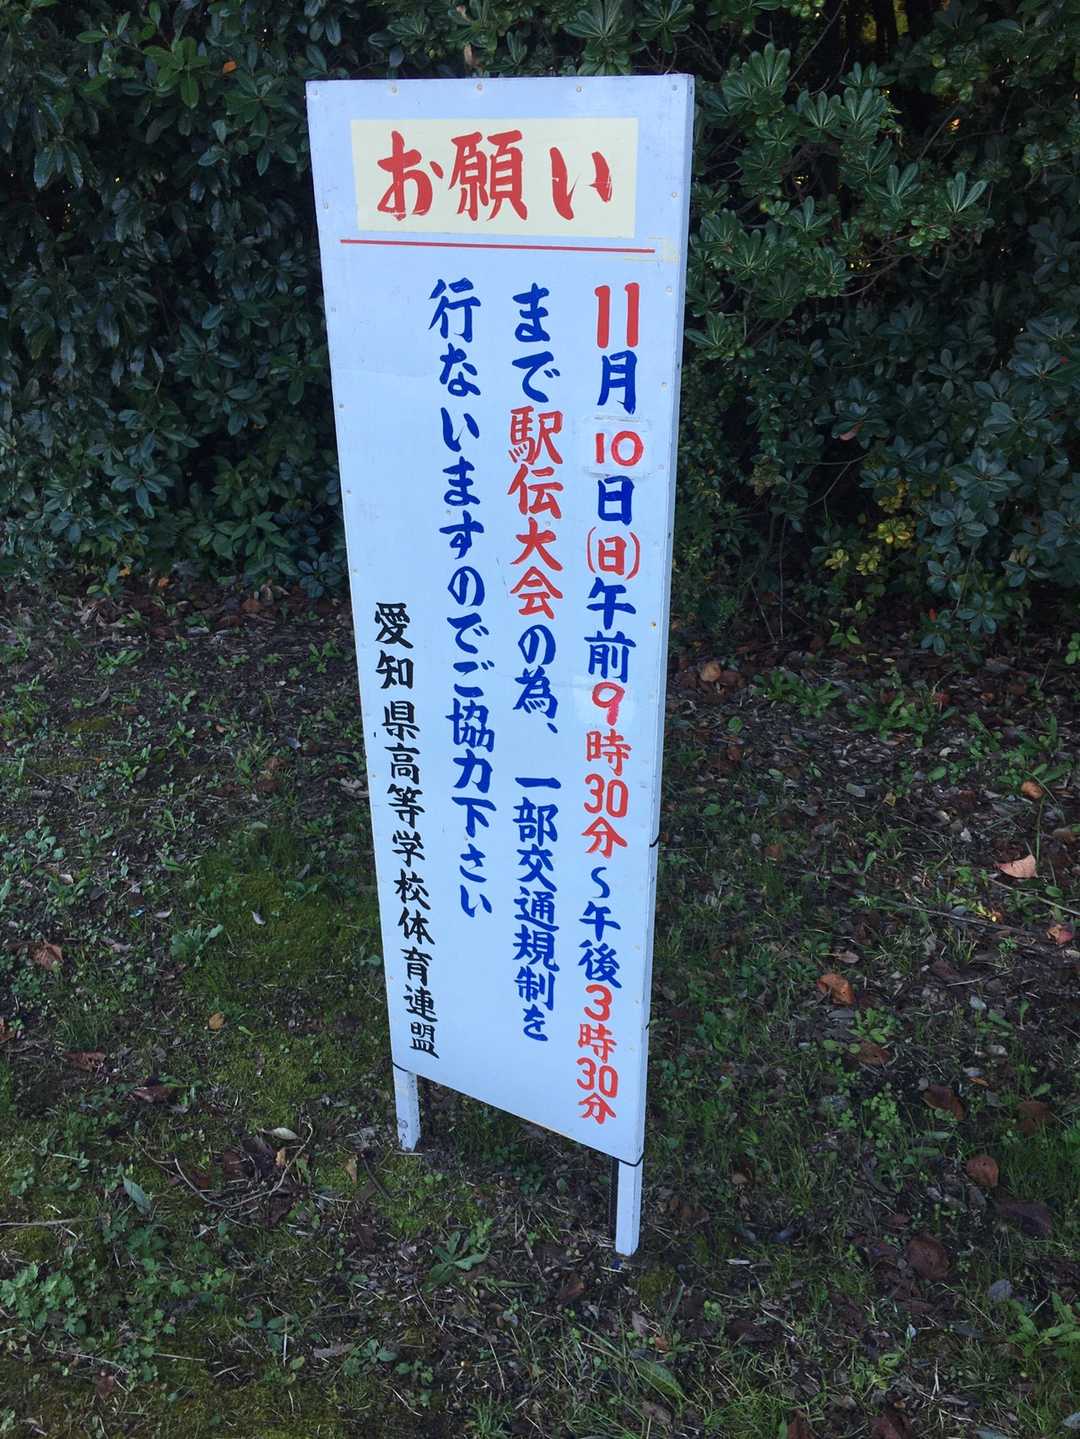 お願い
11月10日(日)午前9時30分~午後3時30分
まで駅伝大会の為、一部交通規制を
行ないますのでご協力下さい
愛知県高等学校体育連盟